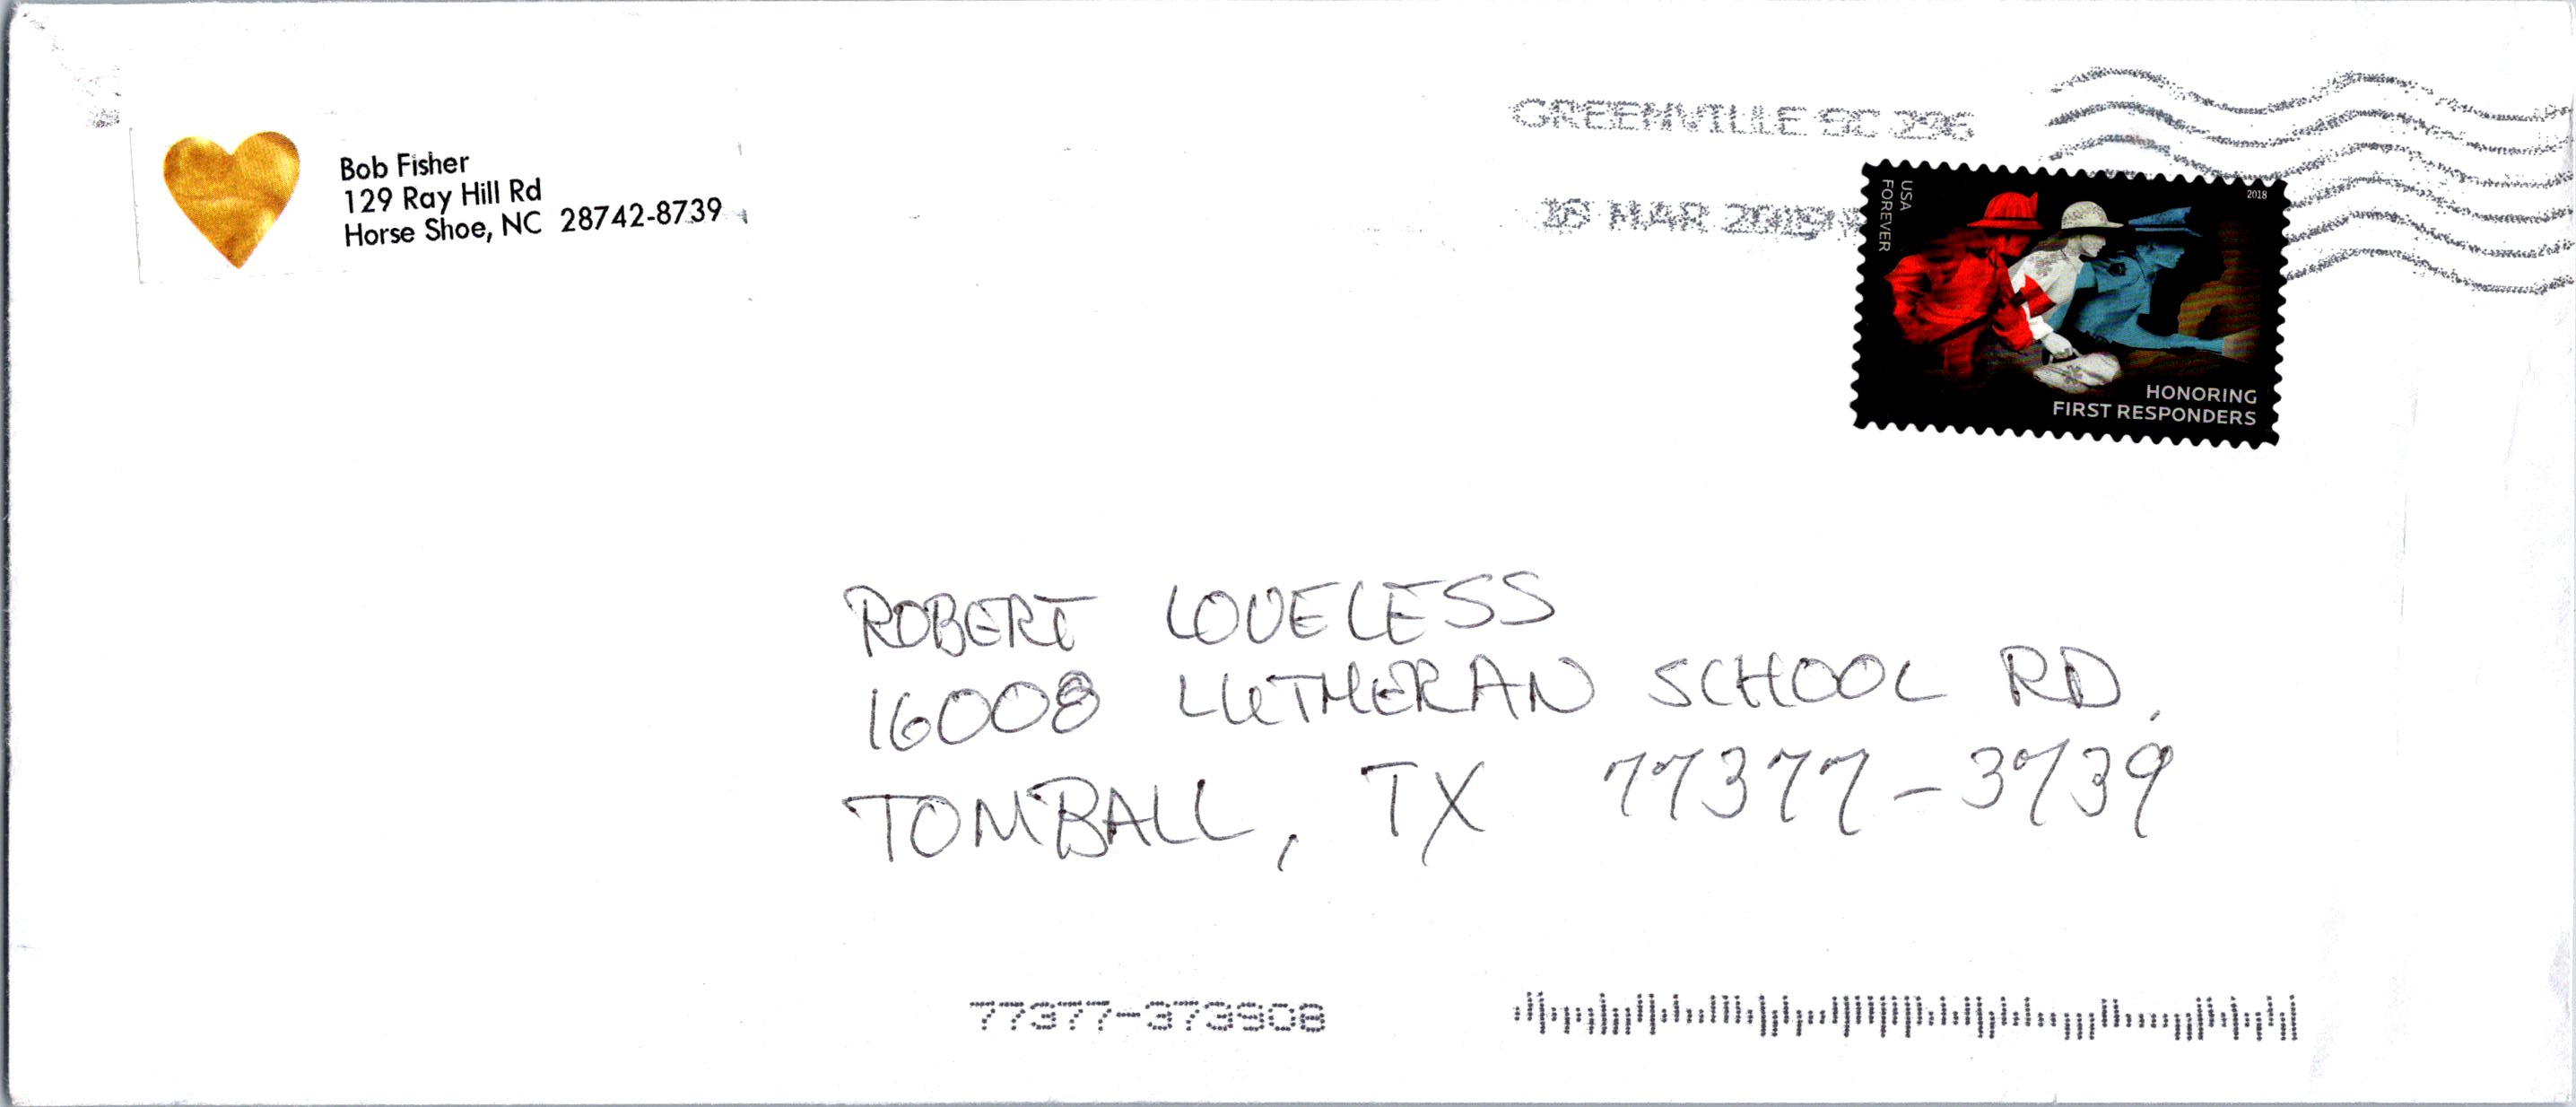 Bob Fisher
129 Ray Hill Rd
Horse Shoe, NC 28742-8739
GREENVILLE SC 296
MAR 2019
USA
FOREVER
2018
HONORING
FIRST RESPONDERS
ROBERT LOVELESS
16008 LUTHERAN SCHOOL RD.
TOMBALL, TX 77377-3739
77377-373908